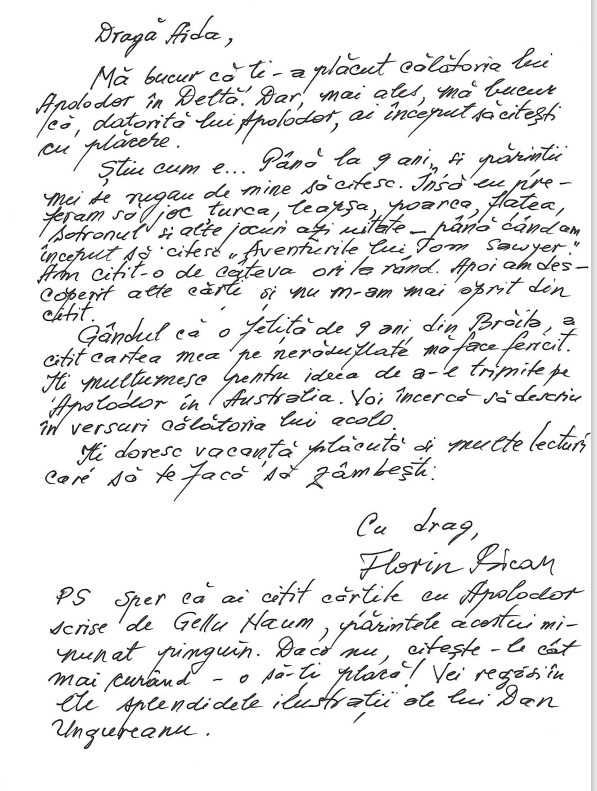 Dragă Aida,
Mă bucur că ți-a plăcut călătoria lui
Apolodor în Deltă. Dar, mai ales, mă bucur
că, datorită lui Apolodor, ai început să citești
cu plăcere.
Știu cum e... Până la 9 ani, și părinții
mei se rugau de mine să citesc. Însă eu pre-
feram să joc țurca, leapșa, poarca, flatea,
șotronul și alte jocuri azi uitate - până când am
început să citesc „Aventurile lui Tom Sawyer."
Am citit-o de câteva ori la rând. Apoi am des-
coperit alte cărți și nu m-am mai oprit din
citit.
Gândul că o fetiță de 9 ani din Brăila, a
citit cartea mea pe nerăsuflate mă face fericit.
Îți mulțumesc pentru ideea de a-l trimite pe
Apolodor în Australia. Voi încerca să descriu
în versuri călătoria lui acolo.
Îți doresc vacanță plăcută și multe lecturi
care să te facă să zâmbești.
Cu drag,
Florin Bican
PS Sper că ai citit cărțile cu Apolodor
scrise de Gellu Naum, părintele acestui mi-
nunat pinguin. Dacă nu, citește-le cât
mai curând - o să-ți placă! Vei regăsi în
ele splendidele ilustrații ale lui Dan
Ungureanu.